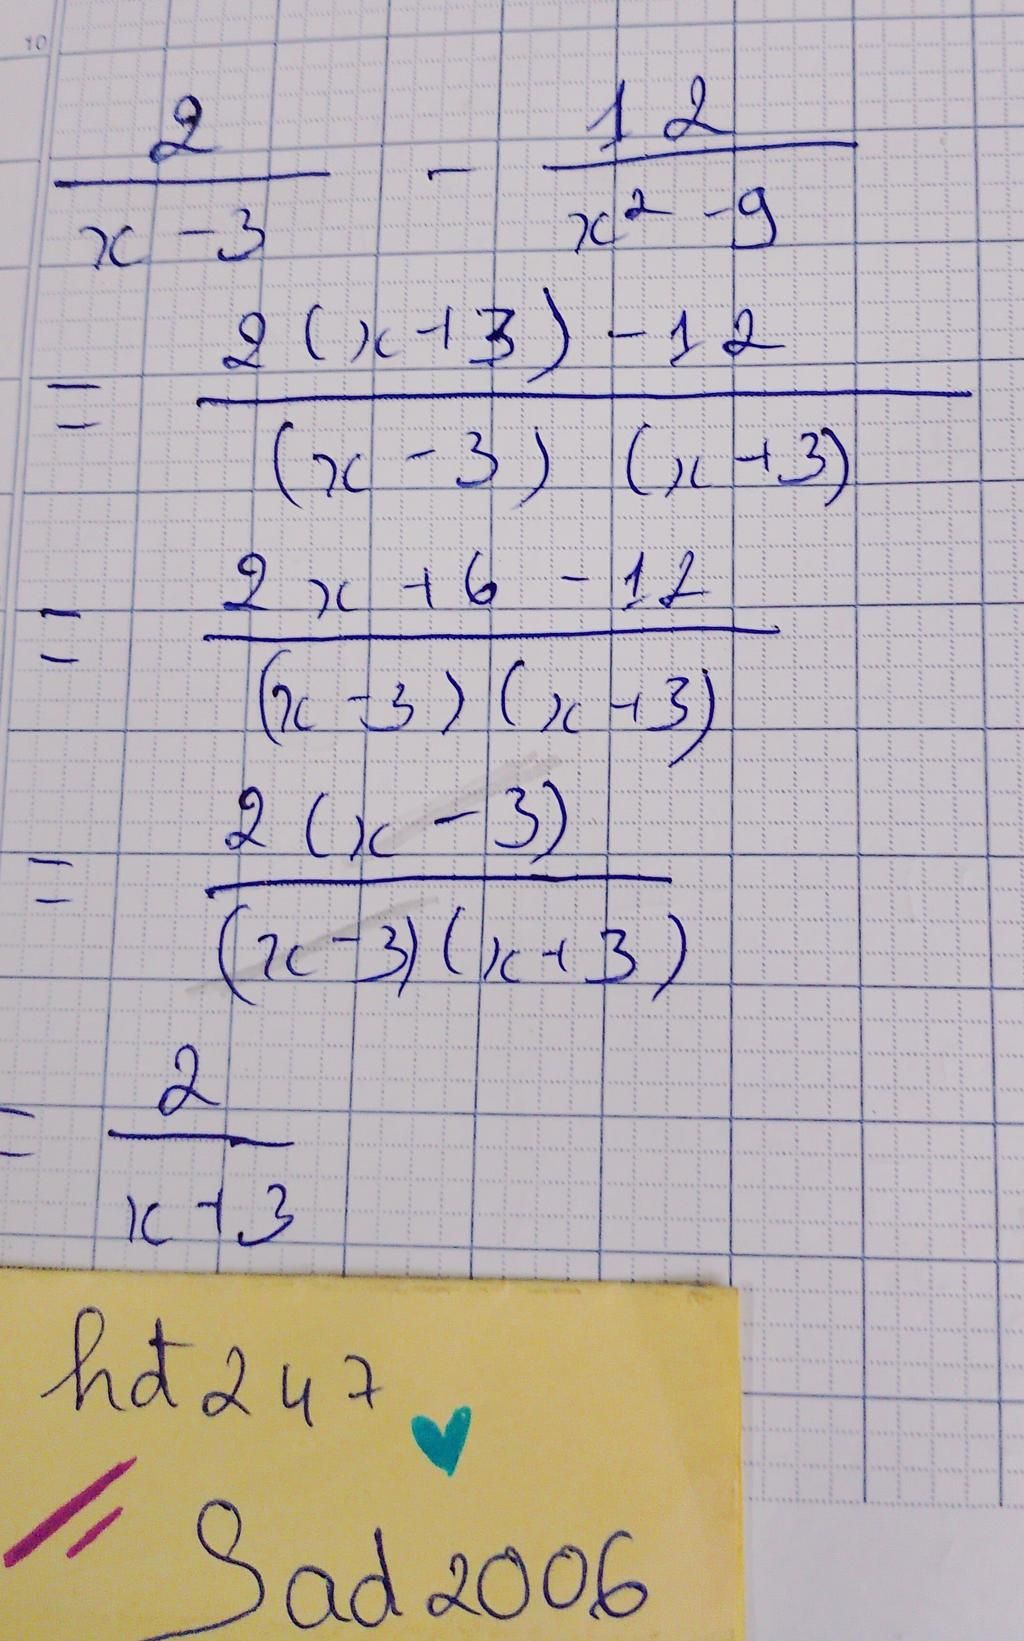 10
2 / (x - 3) - 12 / (x² - 9)
= (2(x+3) - 12) / ((x - 3)(x+3))
= (2x + 6 - 12) / ((x - 3)(x+3))
= 2(x - 3) / ((x - 3)(x+3))
= 2 / (x+3)
hdt247
Sad2006